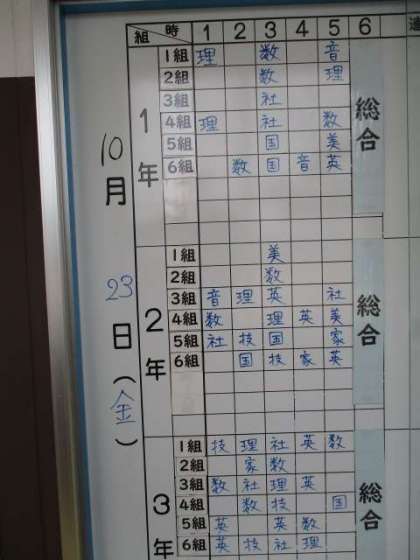 組 時 1 2 3 4 5 6
10月23日(金)
1年 総合
1組 理 数 音
2組 数 理
3組 社
4組 理 社 数
5組 国 美
6組 数 国 音 英
2年 総合
1組 美
2組 数
3組 音 理 英 社
4組 数 理 英 美
5組 社 技 国 家
6組 国 技 家 英
3年 総合
1組 技 理 社 英 数
2組 家 数
3組 数 社 理 英
4組 数 技 国
5組 英 英 数
6組 英 技 社 理